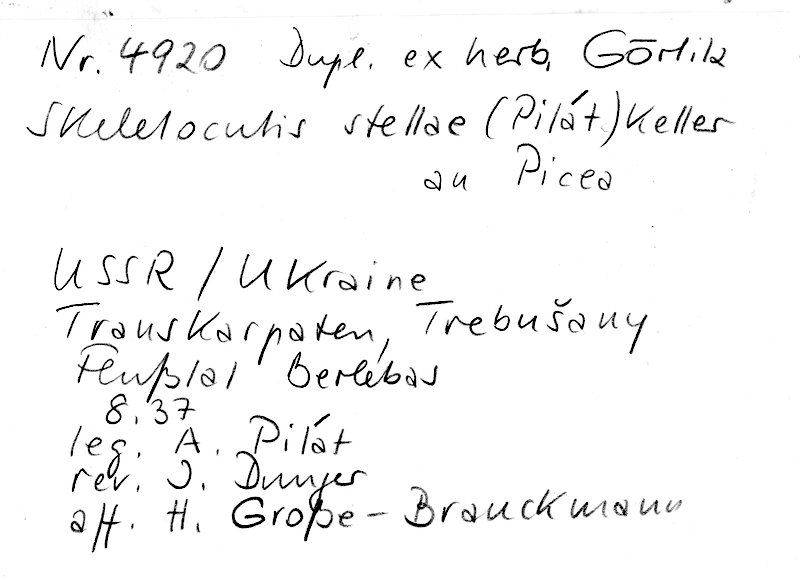 Nr. 4920 Dupl. ex herb. Görlitz
Skeletocutis stellae (Pilát) Keller
an Picea
USSR / Ukraine
Transkarpaten, Trebušany
Flußtal Berlebas
8.37
leg. A. Pilát
rev. I. Dunger
aff. H. Große-Brauckmann